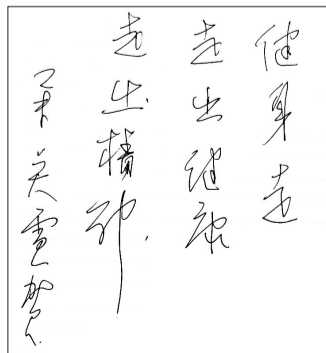 健身走
走出健康
走出精神.
吴雪贺.